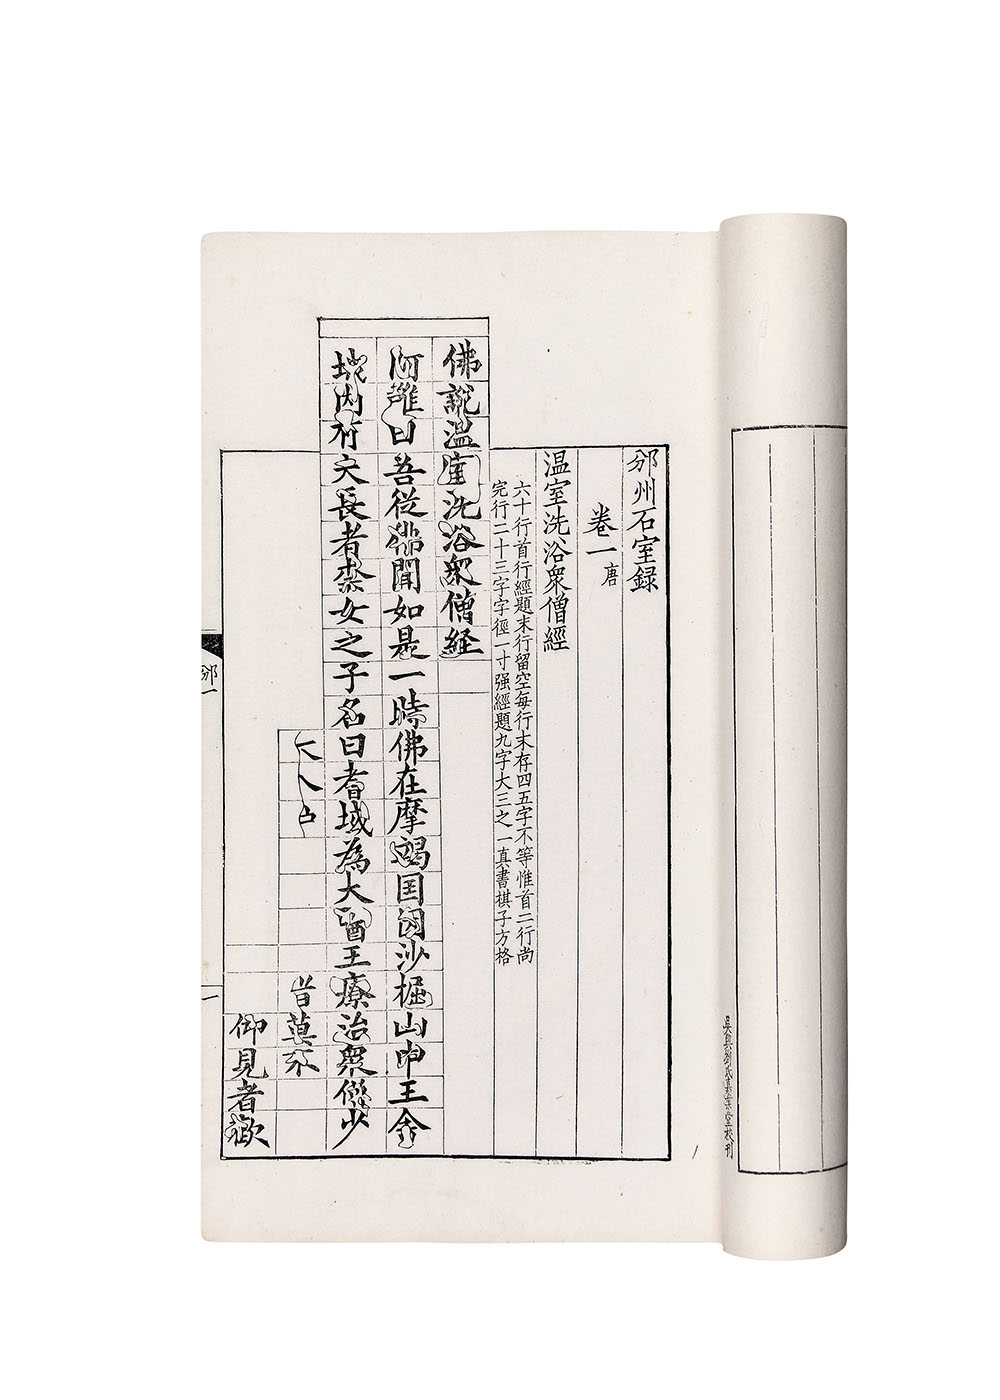 邠州石室録
卷一 唐
温室洗浴衆僧經
六十行首行經題末行留空每行末存四五字不等惟首二行尚
完行二十三字字徑一寸强經題九字大三之一真書棋子方格
佛說温室洗浴衆僧経
阿難曰吾従佛聞如是一時佛在摩竭国因沙掘山中王舍
城内有大長者柰女之子名曰耆域為大醫王療治衆僧少
昔莫不
仰見者歡
邠一
一
吴興劉氏嘉業堂校刊